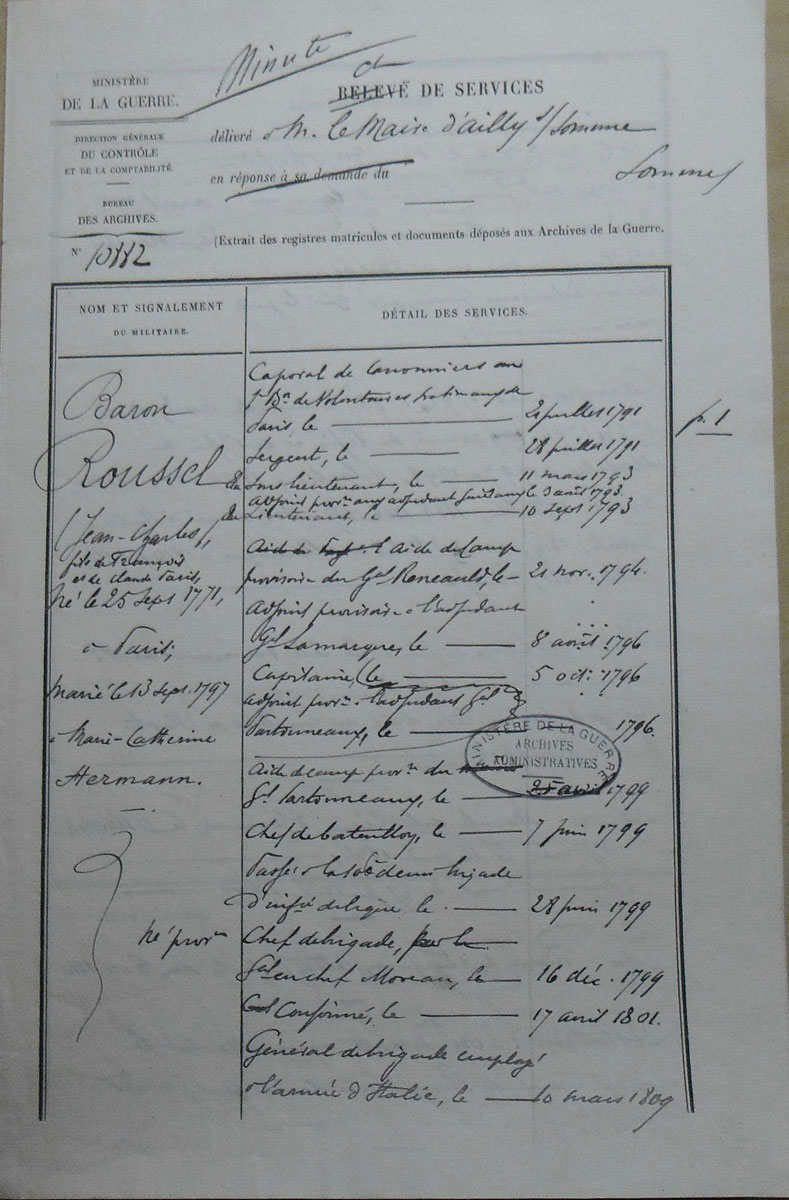 Minute
MINISTÈRE
DE LA GUERRE.
DIRECTION GÉNÉRALE
DU CONTRÔLE
ET DE LA COMPTABILITÉ.
BUREAU
DES ARCHIVES.
N° 10882
RELEVÉ DE SERVICES
délivré à M. le Maire d'Ailly s/Somme
en réponse à sa demande du
Somme
(Extrait des registres matricules et documents déposés aux Archives de la Guerre.
NOM ET SIGNALEMENT
DU MILITAIRE.
DÉTAIL DES SERVICES.
Baron
Roussel
(Jean-Charles),
fils de François
et de Claude Paris,
Né le 25 Sept 1771,
à Paris;
Marié le 13 Sept. 1797
à Marie-Catherine
Hermann.
Caporal de Canonniers au
Bon de Volontaires nationaux de
Paris, le 21 juillet 1791
Sergent, le 28 juillet 1791
Sous lieutenant, le 11 mars 1793
adjoint provre aux adjudant le 3 août 1793
Lieutenant, le 10 sept 1793
Aide de Camp
provisoire du Gal Reneauld, le 21 nov. 1794
Adjoint provisoire à l'adjudant
Gal Lamarque, le 8 août 1796
Capitaine, le 5 oct. 1796
adjoint prov. à l'adjudant Gal
Partouneaux, le 1796.
Aide de camp provre du
Gl Partouneaux, le 25 avril 1799
MINISTÈRE DE LA GUERRE
ARCHIVES
ADMINISTRATIVES
Chef de bataillon, le 7 juin 1799
Passé à la demi brigade
d'infie de ligne le 28 juin 1799
Né provre
Chef de brigade, par le
Gal en chef Moreau, le 16 déc. 1799
Confirmé, le 17 avril 1801.
Général de brigade employé
à l'armée d'Italie, le 10 mars 1809
p. 1